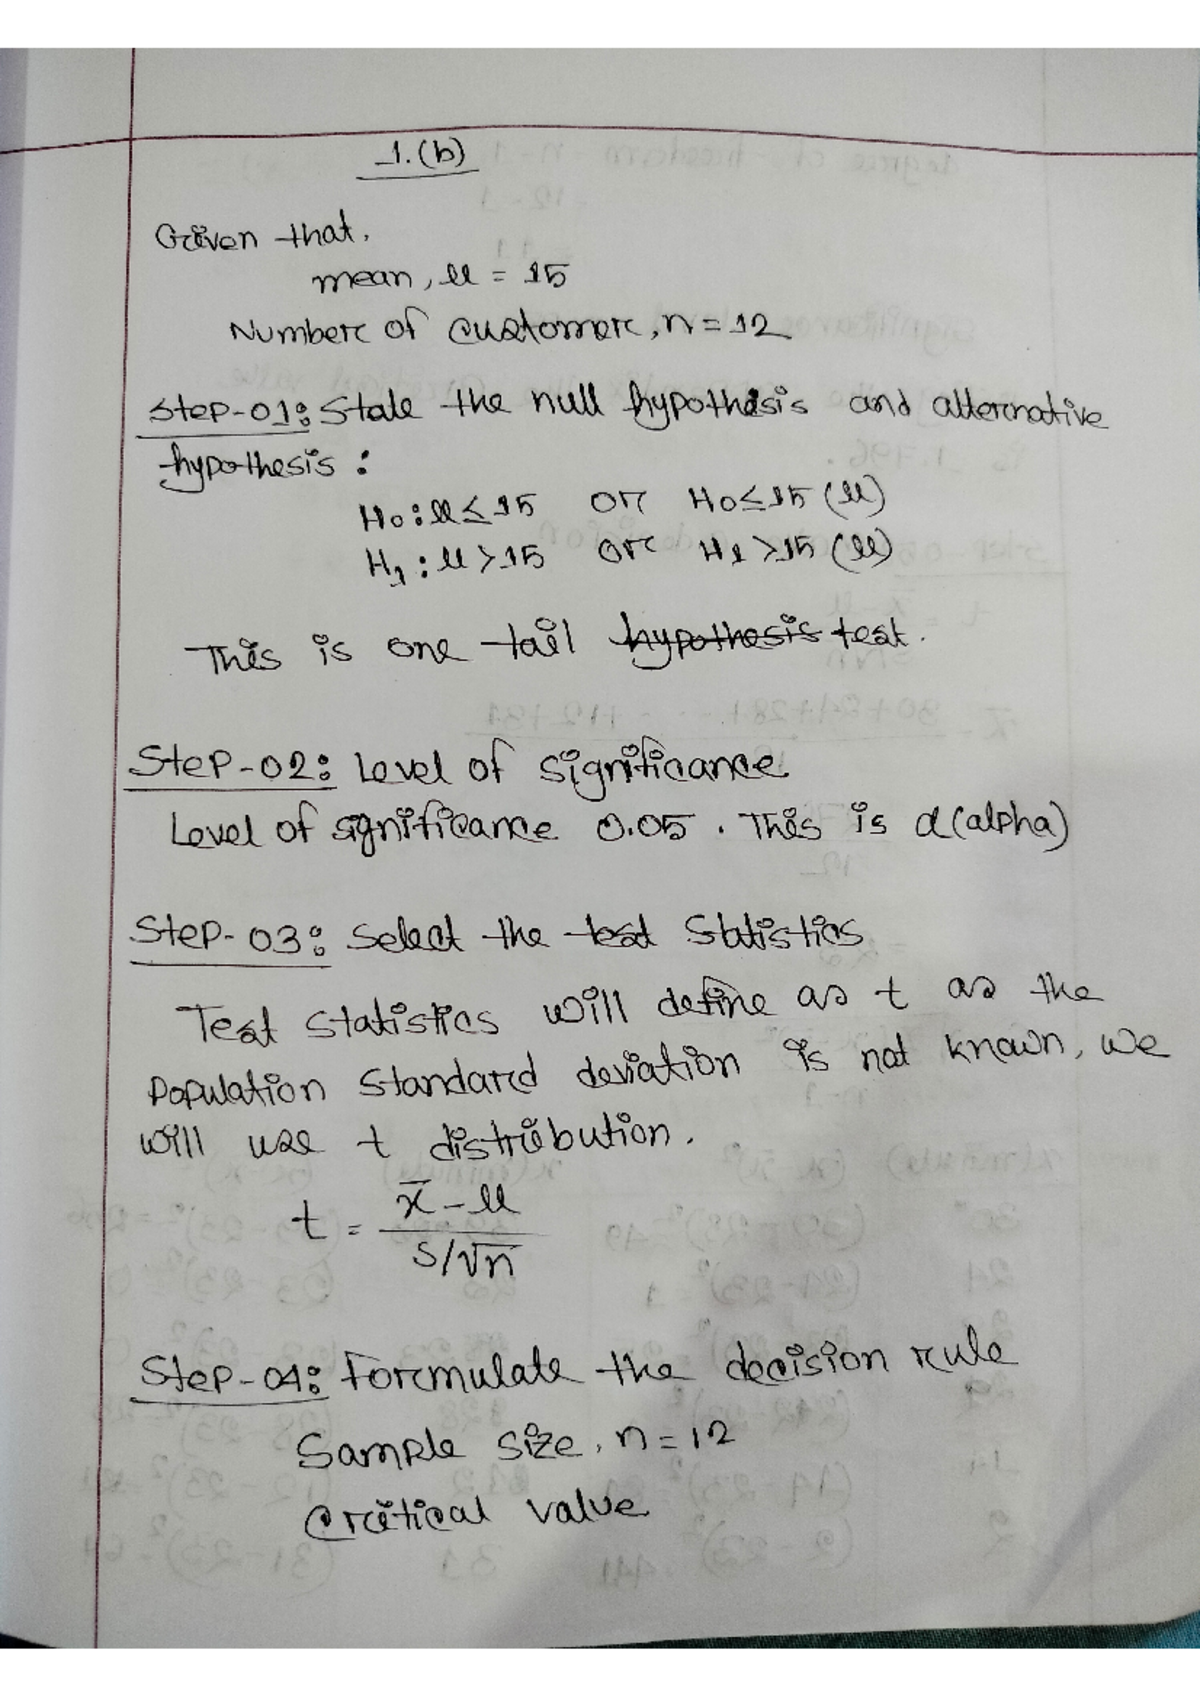 1.(b)
Given that,
mean, μ = 15
Number of customer, n = 12
Step-01: State the null hypothesis and alternative
hypothesis :
H₀ : μ ≤ 15 or H₀ ≤ 15 (μ)
H₁ : μ > 15 or H₁ > 15 (μ)
This is one tail hypothesis test.
Step-02: Level of significance
Level of significance 0.05 . This is α (alpha)
Step-03: Select the test Statistics
Test statistics will define as t as the
population standard deviation is not known, we
will use t distribution.
t = x̄ - μ / s/√n
Step-04: Formulate the decision rule
Sample size, n = 12
Critical value